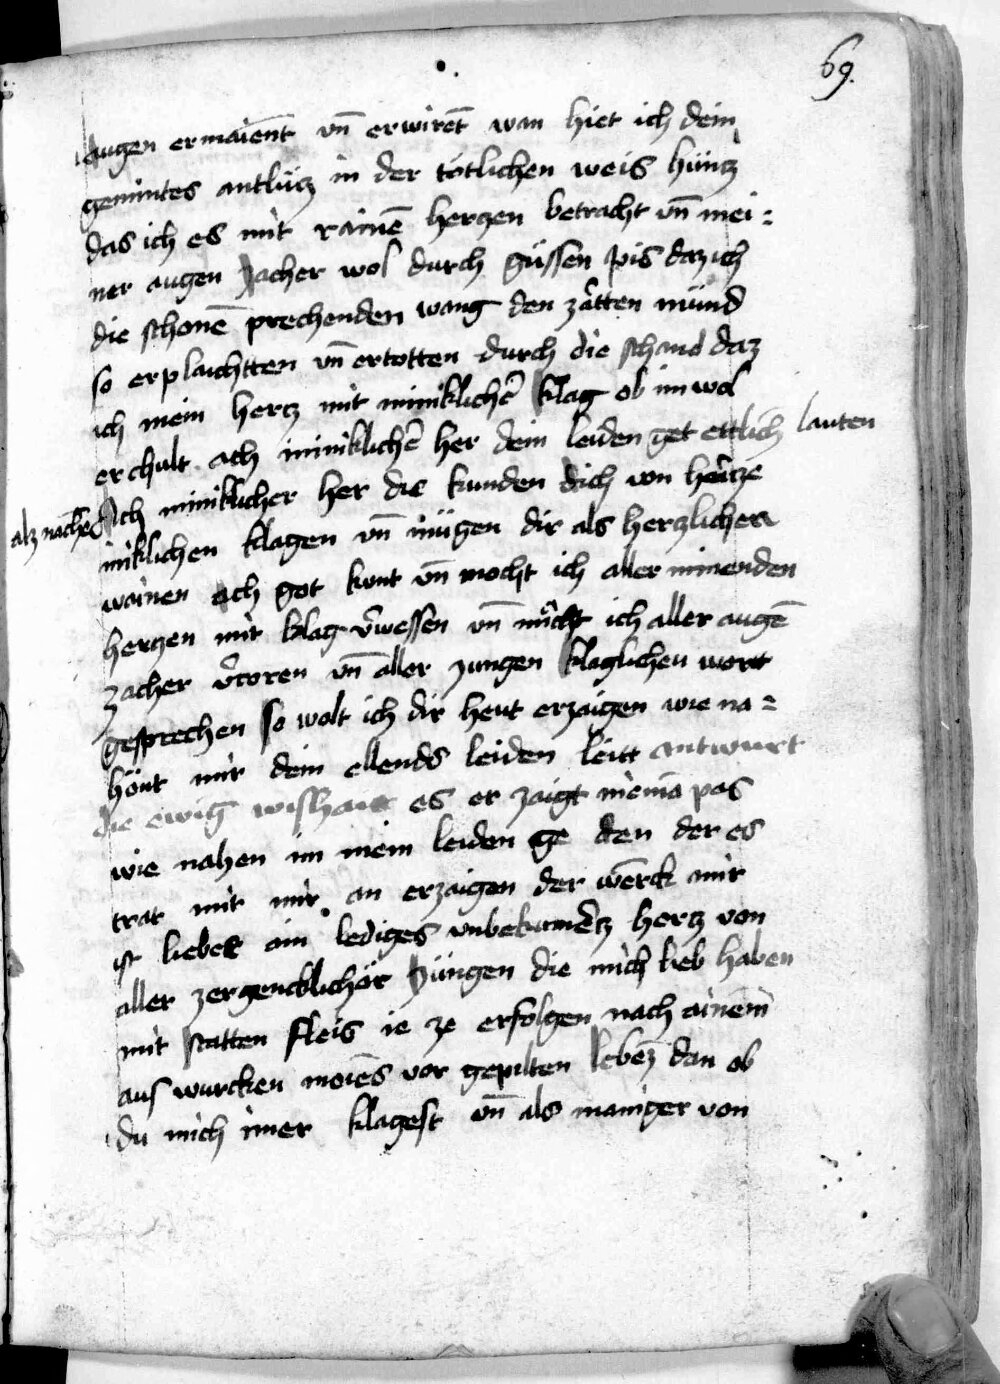 69.
augen ermaient vn̄ erwiret wan hiet ich dein
gemintes antlücz in der tötlichen weis hüncz
das ich es mit rainē herczen betracht vn̄ mei=
ner augen zacher wol durch güssen pis daz ich
die schonē prechenden wang den zärtten münd
so erplaichtten vn̄ ertotten durch die schaud daz
ich mein hercz mit miniklichē klag ob im wol
erchult ach miniklichē her dein leiden get ettlich lauten
alz nachēt Ach miniklicher her die kunden dich von hercze
niklichen klagen vn̄ mügen dir als herczlichen
wainen ach got kunt vn̄ mocht ich aller minenden
herczen mit klag v̄wessen vn̄ möcht ich aller augē
zacher v̄roren vn̄ aller zungen klaglichen wort
gesprechen so wolt ich dir heut erzaigen wie na=
hönt mir dein ellends leiden leitt antwurt
die ewig wishait es er zaigt niemā pas
wie nahen im mein leiden ge den der es
trat mit mir an erzaigen der werck mir
ist lieber ain lediges unbekumertz hercz von
aller zergencklichör züngen die mich lieb haben
mit statten fleis ie ze erfolgen nach ainem
aus wurcken meines vor gepilten lebēz dan ob
du mich imer klagest vn̄ als maniger von